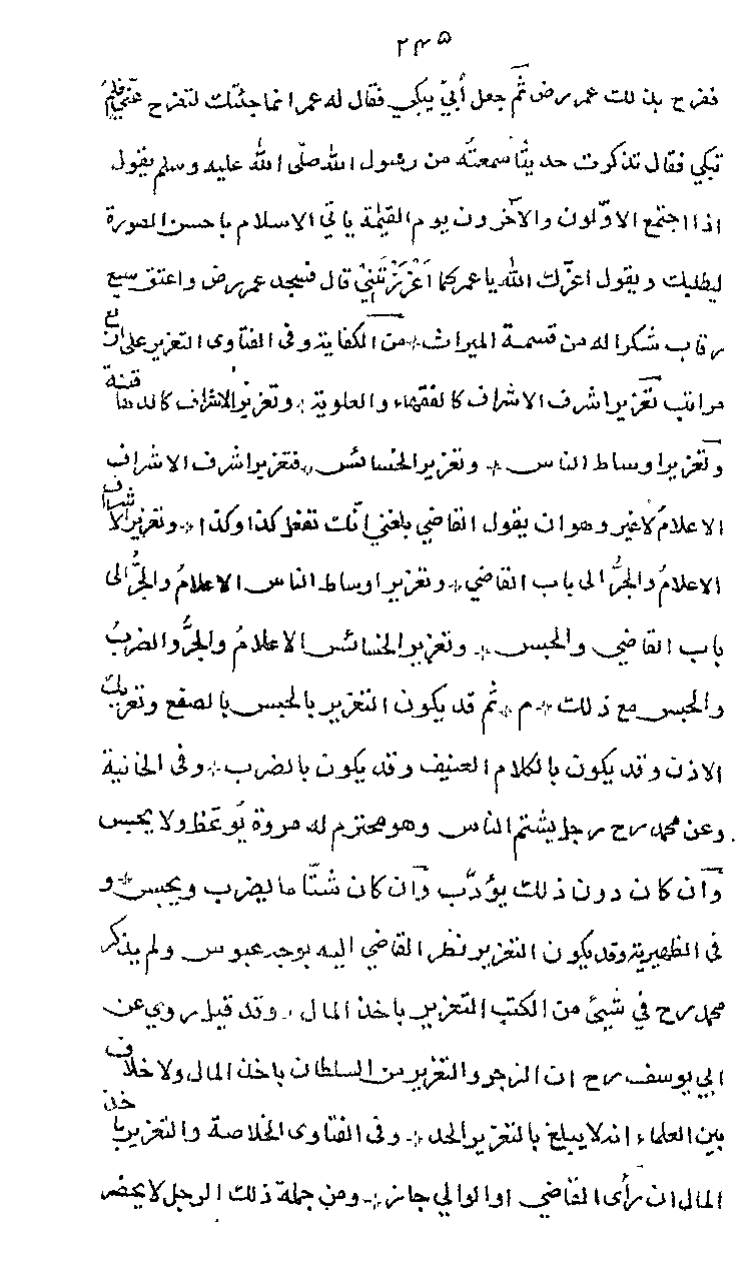 ٢٤٥
ففرح بذلك عمر رض ثم جعل أُبيّ يبكي فقال له عمر انما جئتك لتفرح عنّي فلم
تبكي فقال تذكرت حديثا سمعته من رسول الله صلّى الله عليه وسلم يقول
اذا اجتمع الاوّلون والآخرون يوم القيمة ياتي الاسلام باحسن الصورة
ليطلبك ويقول اعزّك الله يا عمر كما اَعْزَزْتَنِيْ قال فسجد عمر رض واعتق سبع
رقاب شكرا له من قسمة الميراث من الكفاية وفى الفتاوى التعزير على اربع
مراتب تعزير اشرف الاشراف كالفقهاء والعلوية وتعزير الاشراف كالدهاقنة
وتعزير اوساط الناس وتعزير الخسائس فتعزير اشرف الاشراف
الاعلامُ لا غير وهو ان يقول القاضي بلغني انّك تفعل كذا وكذا وتعزير الاشراف
الاعلامُ والجرُّ الى باب القاضي وتعزير اوساط الناس الاعلامُ والجرُّ الى
باب القاضي والحبس وتعزير الخسائس الاعلامُ والجرُّ والضربُ
والحبس مع ذلك م ثم قد يكون التعزير بالحبس بالصفع وتعريك
الاذن وقد يكون بالكلام العنيف وقد يكون بالضرب وفى الخانية
وعن محمد رح رجل يشتم الناس وهو محترم له مروة يُوعَظ ولا يحبس
وان كان دون ذلك يؤدّب وان كان شتّاما يضرب ويحبس و
فى الظهيرية وقد يكون التعزير نظر القاضي اليه بوجه عبوس ولم يذكر
محمد رح في شيئ من الكتب التعزير باخذ المال وقد قيل روي عن
ابي يوسف رح ان الزجر والتعزير من السلطان باخذ المال ولا خلاف
بين العلماء انه لا يبلغ بالتعزير الحد وفى الفتاوى الخلاصة والتعزير باخذ
المال ان رأى القاضي او الوالي جائز ومن جملة ذلك الرجل لا يحضر